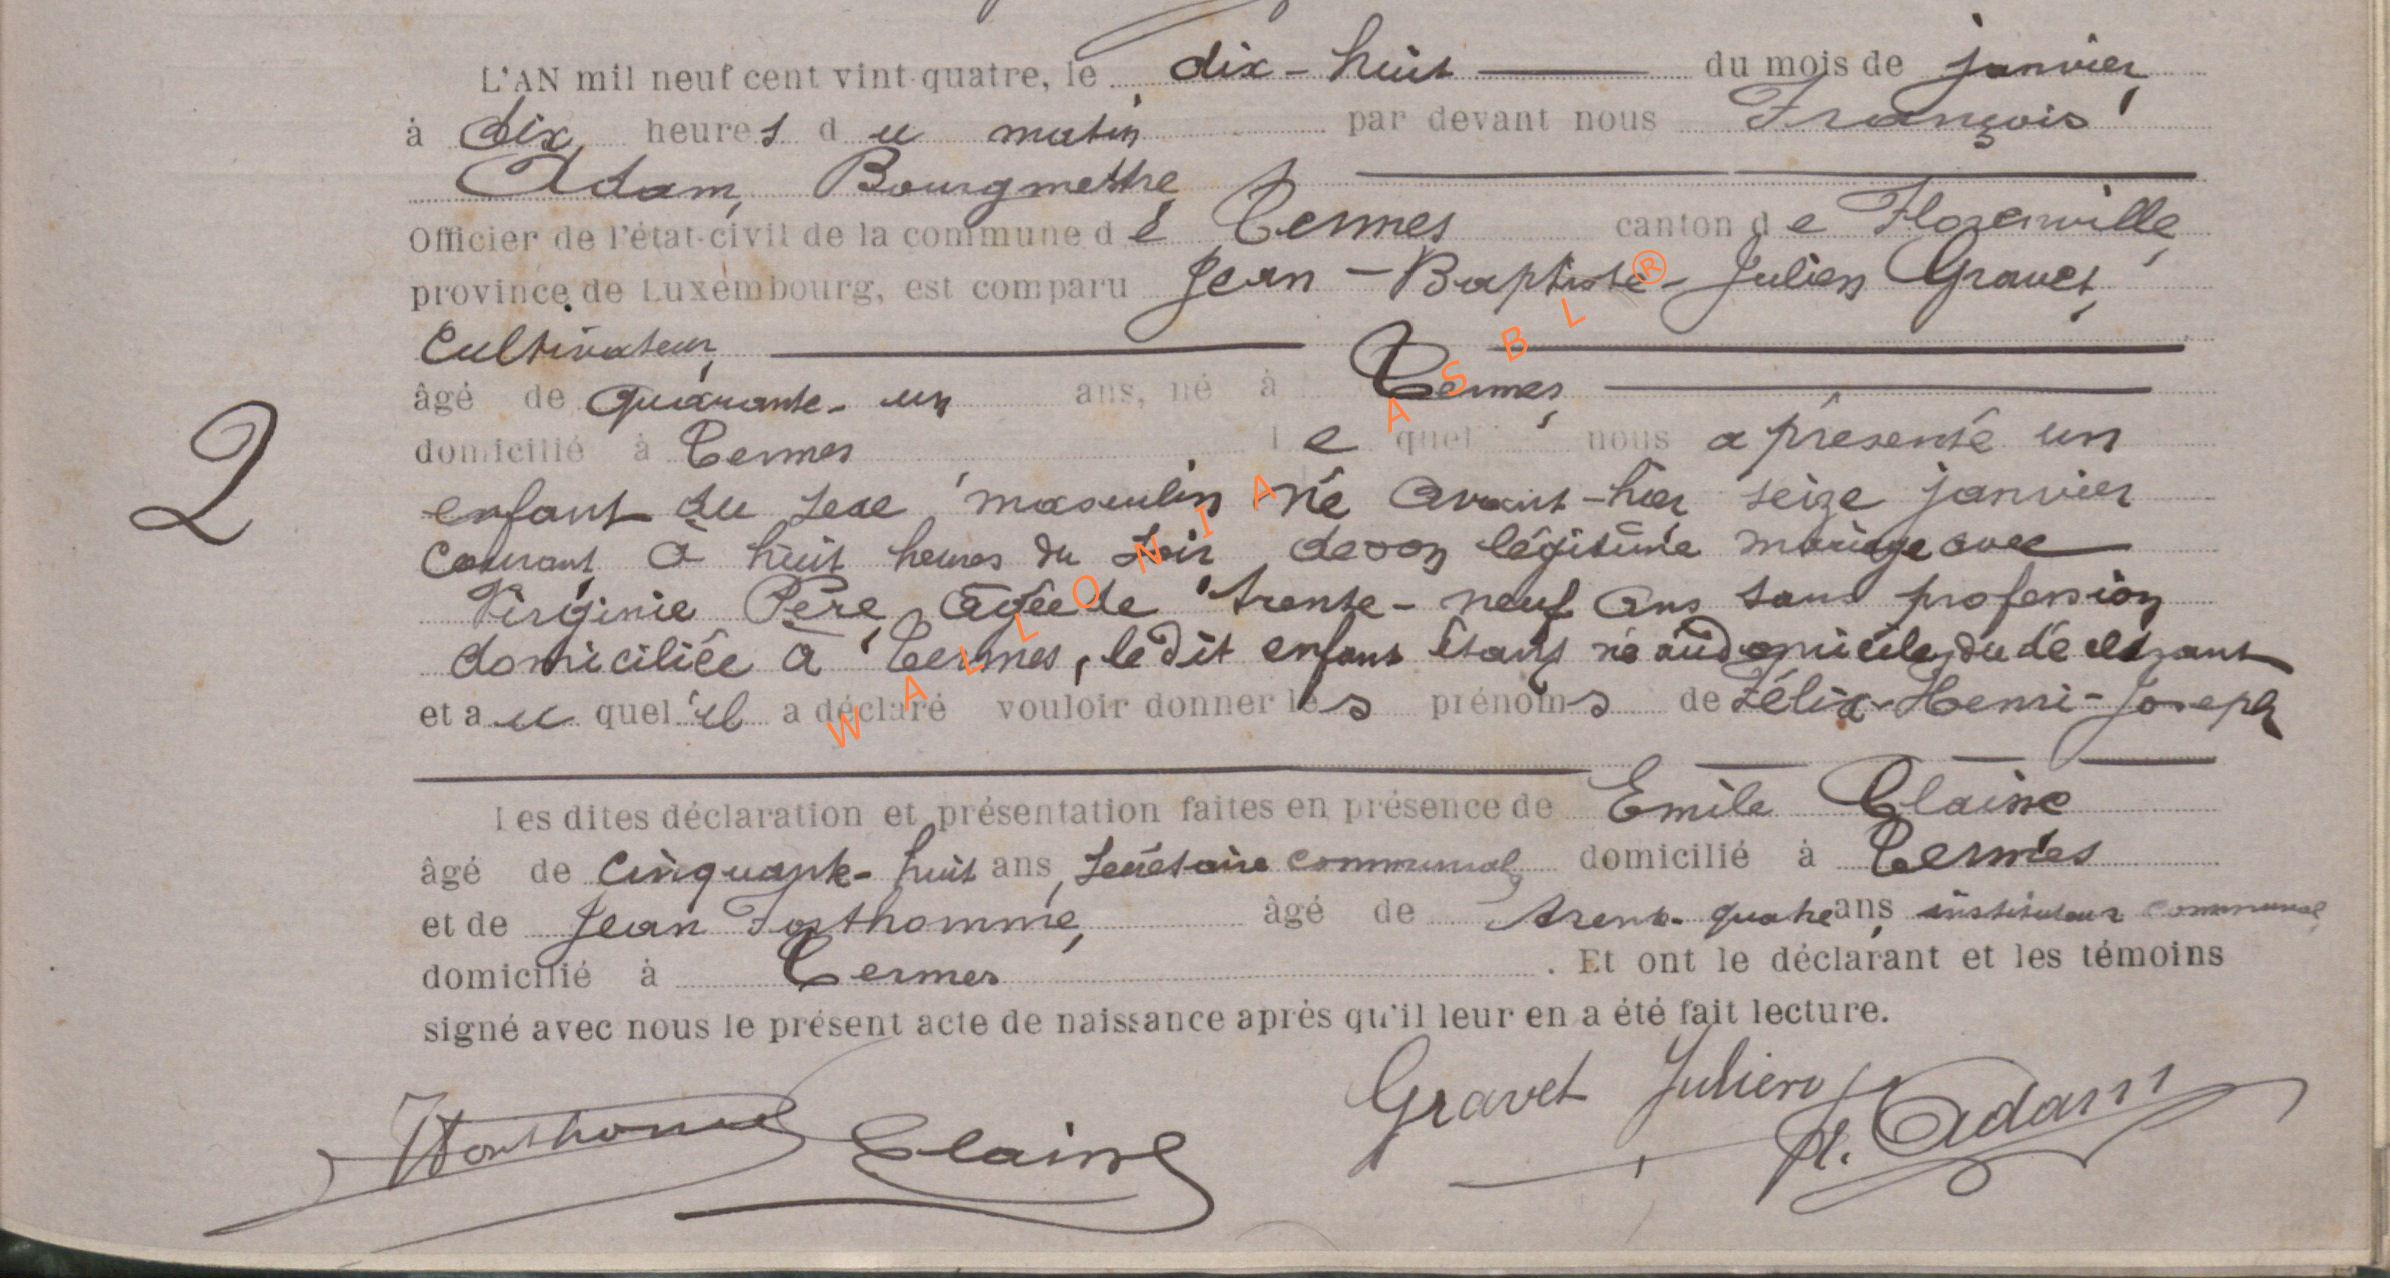 L'AN mil neuf cent vint-quatre, le dix-huit du mois de janvier
à dix heures du matin par devant nous François
Adam, Bourgmestre
Officier de l'état-civil de la commune de Termes canton de Florenville
province de Luxembourg, est comparu Jean-Baptiste-Julien Gravet,
Cultivateur,
âgé de quarante-un ans, né à Termes,
domicilié à Termes lequel nous a présenté un
2
enfant du sexe masculin né avant-hier seize janvier
courant à huit heures du soir de son légitime mariage avec
Virginie Père, âgée de trente-neuf ans sans profession
domiciliée à Termes, le dit enfant étant né au domicile du déclarant
et auquel il a déclaré vouloir donner les prénoms de Félix-Henri-Joseph
Les dites déclaration et présentation faites en présence de Emile Claisse
âgé de cinquante-huit ans, secrétaire communal domicilié à Termes
et de Jean Forthomme, âgé de trente-quatre ans, instituteur communal,
domicilié à Termes. Et ont le déclarant et les témoins
signé avec nous le présent acte de naissance après qu'il leur en a été fait lecture.
JForthomme Claisse Gravet Julien F. Adam
WALLONIA ASBL®